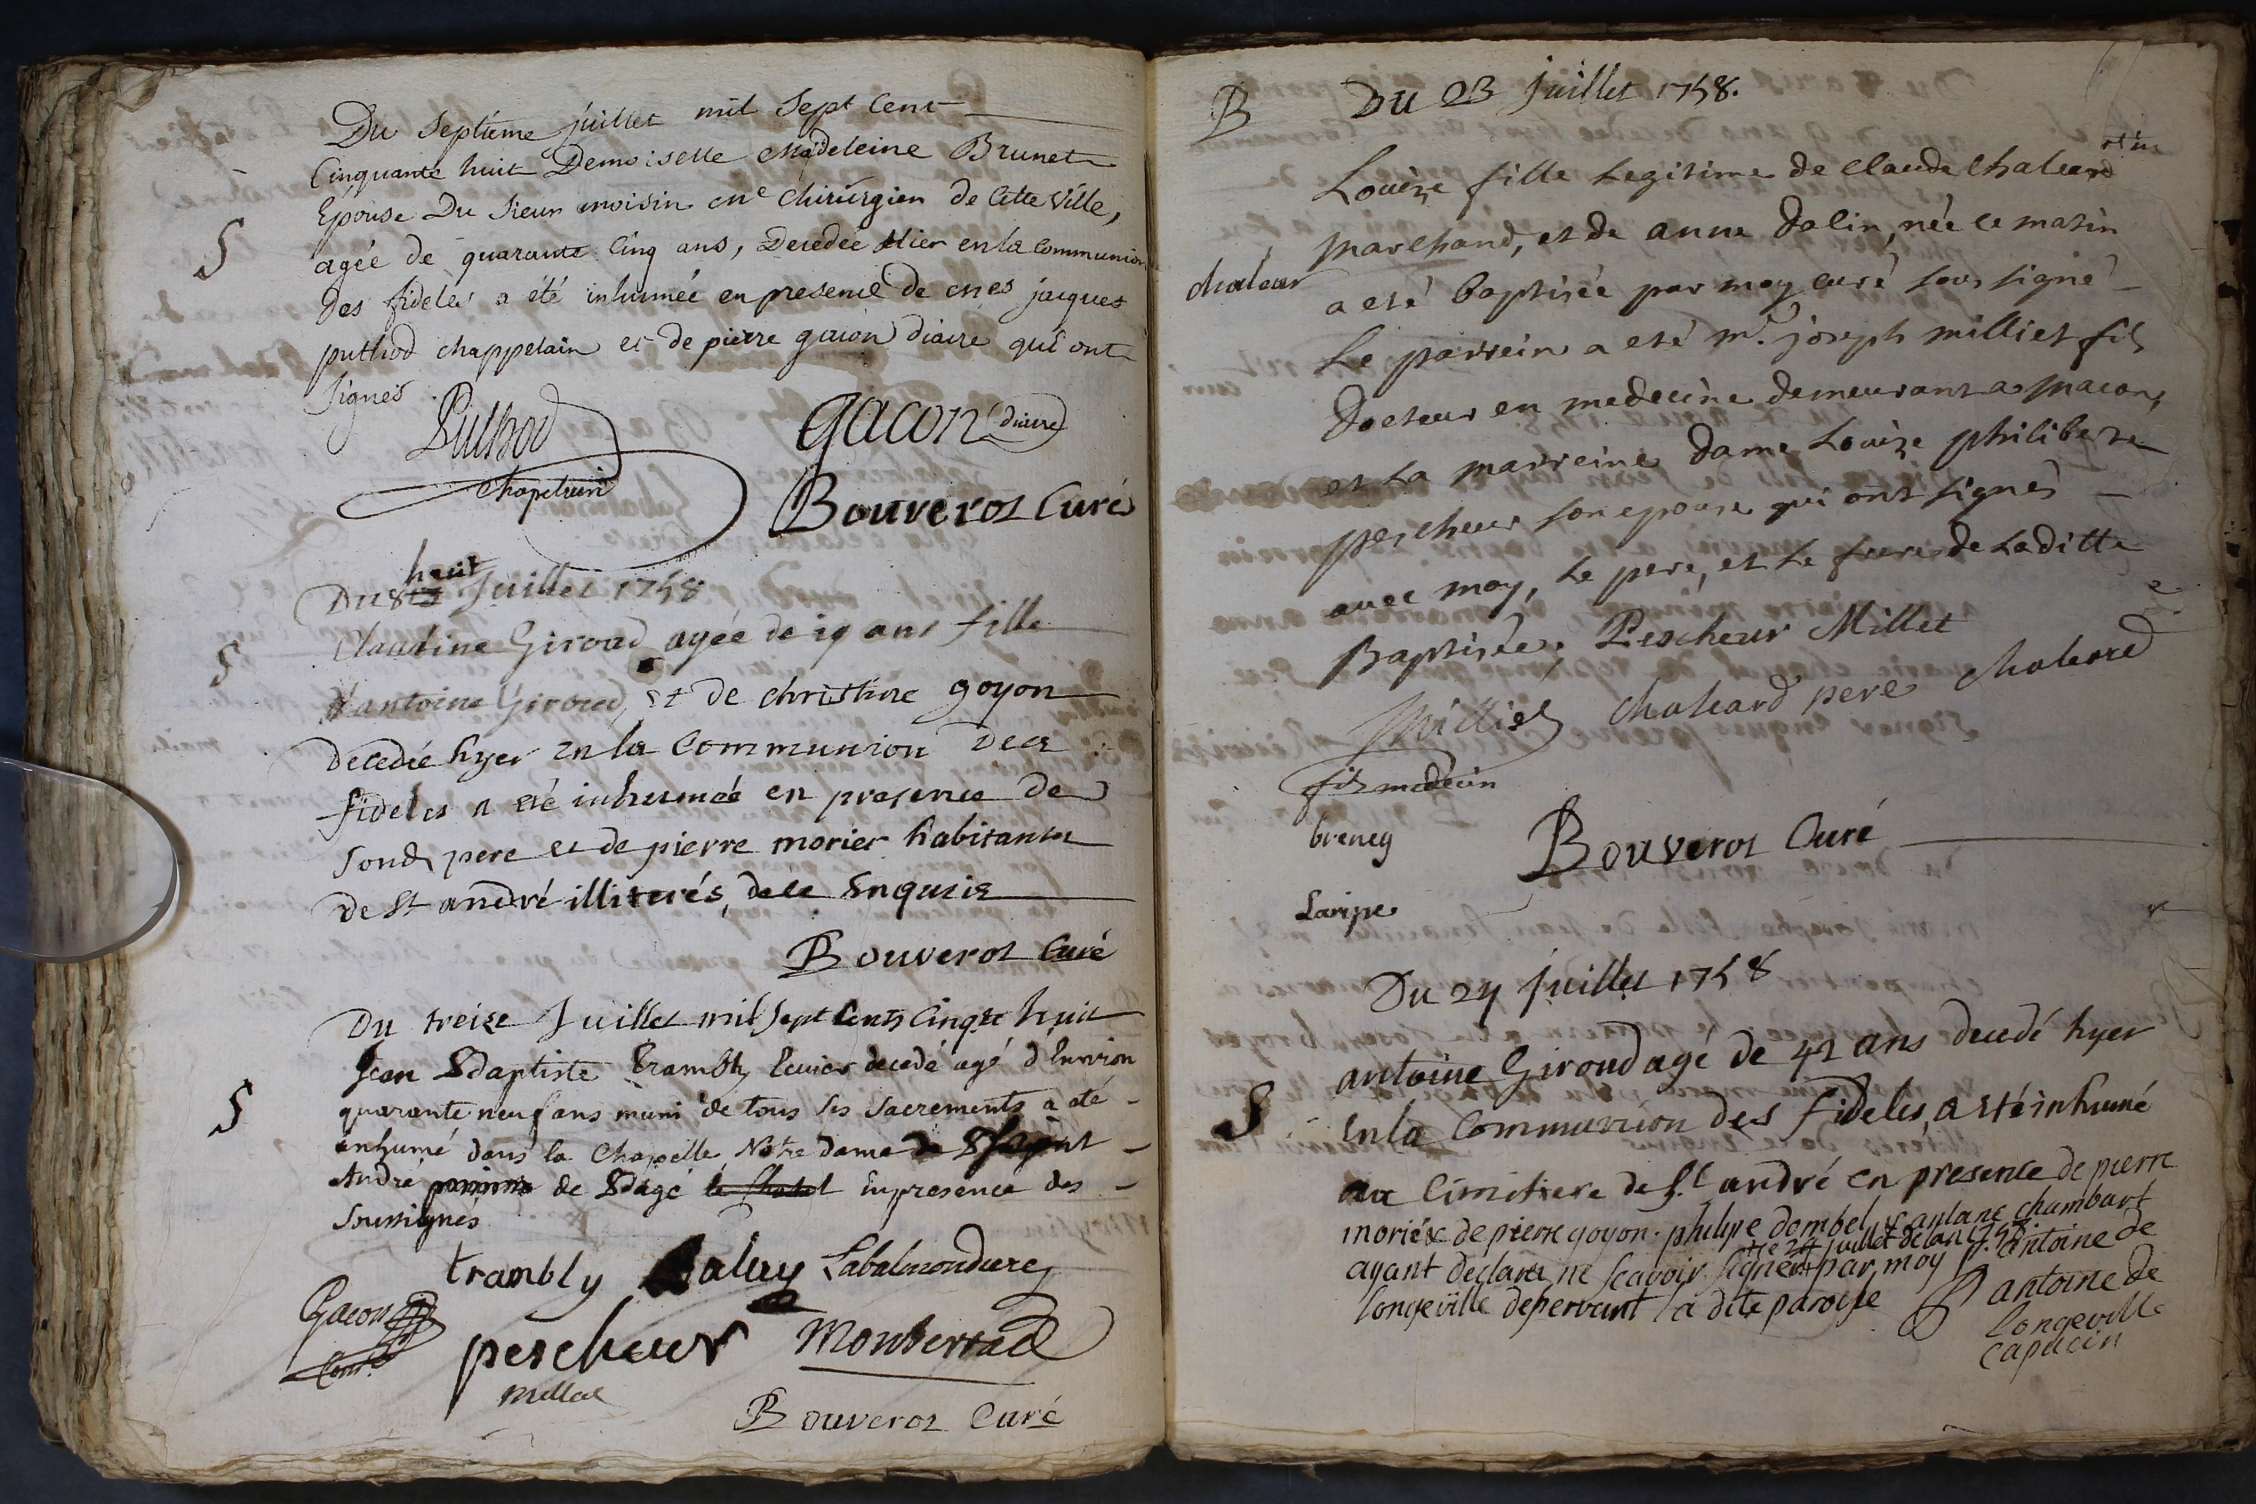 Du Septième juillet mil Sept Cent
Cinquante huit Demoiselle Madeleine Brunet
Epouse Du Sieur moisin me Chirurgien de Cette Ville,
S
agée de quarante Cinq ans, Decedée Hier en la Communion
Des fideles a été inhumée en presence de mes jacques
puthod chappelain et de pierre gacon diacre qui ont
signés
Puthod
Chapelain
Gacon diacre
Bouverot Curé
Du 8 huit Juillet 1758
S
Claudine Giroud agée de 19 ans fille
d'antoine Giroud, et de christine goyon
decedée hyer en la Communion des
fideles a eté inhumée en presence de
sond pere et de pierre morier habitants
de St andré illiterés, de ce Enquis
Bouverot Curé
Du treize Juillet mil Sept Cents Cinqte huit
Jean Bdaptiste Trambly decedé agé d'Environ
S
quarante neuf ans muni de tous ses Sacrements a eté
inhumé dans la Chapelle Notre dame de
André de Bdagé le Chatel En presence des
Soussignés
trambly Labalmondiere
Gacon
pescheur Monterrad
Millet
Bouverot Curé
B Du 23 Juillet 1758.
Louize fille Legitime de Claude Chaleard
marchand, et de anne dolin, née ce matin
chalear
a eté baptisée par moy curé sous signé
Le parrein a eté mr. joseph milliet fils
Docteur en medecine demeurant a macon,
et La marreine dame Louize philiberte
pescheur son epouse qui ont signés
avec moy, Le pere, et Le frere de Laditte
Baptisée; Pescheur Millet
Milliet Chaleard pere Chaleard
fils medecin
breney
Bouverot Curé
Laripe
Du 24 juillet 1758
antoine Giroud agé de 42 ans decedé hyer
S
En la Communion des fideles, a eté inhumé
au Cimetiere de St andré en presence de pierre
moriér de pierre goyon. philipe dombel, antoine chambart
+ le 24 juillet de lan 1758
ayant declarés ne scavoir signer+ par moy p. antoine de
longeville deservant la dite paroisse
P antoine de
longeville
capucin